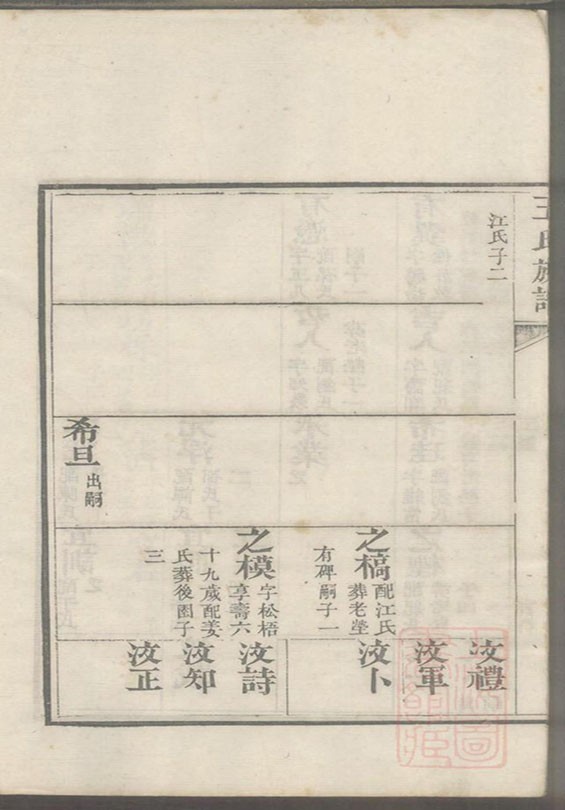 王氏族譜
江氏子二
希旦
出嗣
之槁
配江氏
葬老塋
有碑嗣子一
之模
字松梧
享壽六
十九歲配姜
氏葬後園子
三
汝禮
汝軍
汝卜
汝詩
汝知
汝正